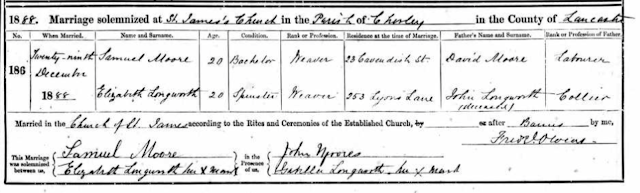 1888. Marriage solemnized at St. James's Church in the Parish of Chorley in the County of Lancaster
No. When Married. Name and Surname. Age. Condition. Rank or Profession. Residence at the time of Marriage. Father's Name and Surname. Rank or Profession of Father.
186 Twenty-ninth December 1888 Samuel Moore 20 Bachelor Weaver 23 Cavendish St. David Moore Labourer
Elizabeth Longworth 20 Spinster Weaver 253 Lyons Lane John Longworth (deceased) Collier
Married in the Church of St. James according to the Rites and Ceremonies of the Established Church, by or after Banns by me,
This Marriage was solemnized between us, Samuel Moore In the Presence of us, John Moores
Elizabeth Longworth her X mark Longworth her X mark